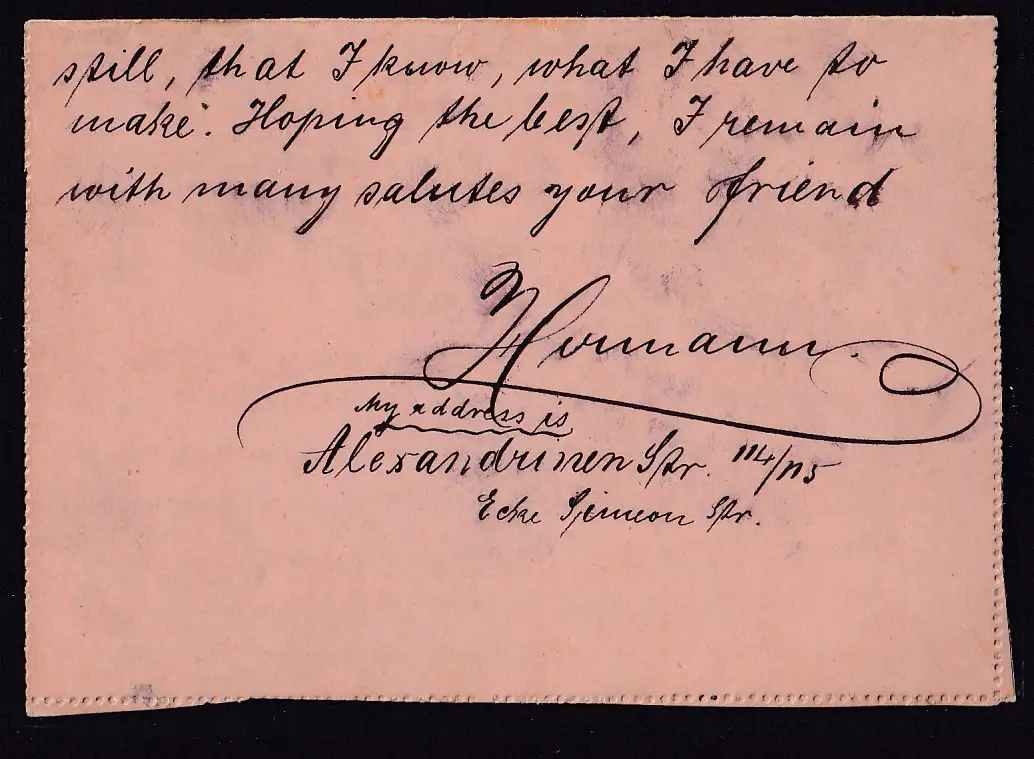 still, that I know, what I have to
make. Hoping the best, I remain
with many salutes your friend
Hermann.
My address is
Alexandrinen Str. 114/115
Ecke Simeon Str.